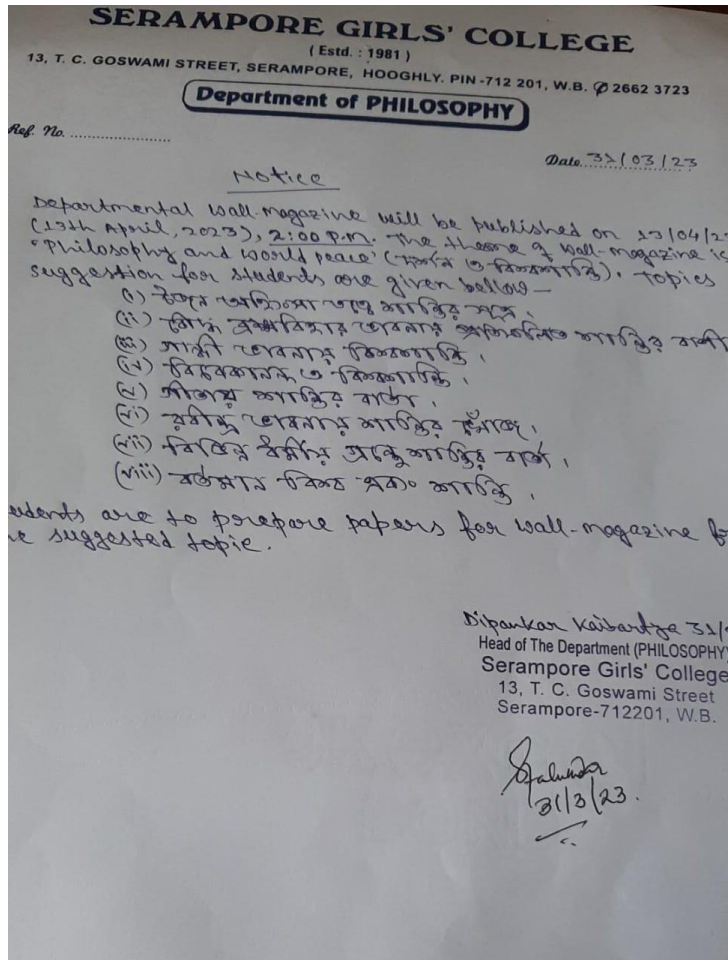 SERAMPORE GIRLS' COLLEGE
( Estd. : 1981 )
13, T. C. GOSWAMI STREET, SERAMPORE, HOOGHLY. PIN -712 201, W.B. ✆ 2662 3723
Department of PHILOSOPHY
Ref. No. ........................
Date. 31/03/23
Notice
Departmental wall-magazine will be published on 13/04/2
(13th April, 2023), 2:00 P.M. The theme of wall-magazine is
"Philosophy and world peace" (দর্শন ও বিশ্বশান্তি). Topics
suggestion for students are given bellow—
(i) জৈন অহিংসা তত্ত্বে শান্তির
(ii) বৌদ্ধ ব্রহ্মবিহার ভাবনায় প্রতিফলিত শান্তির বাণী
(iii) গান্ধী ভাবনায় বিশ্বশান্তি।
(iv) বিবেকানন্দ ও বিশ্বশান্তি।
(v) গীতায় শান্তির বার্তা।
(vi) রবীন্দ্র ভাবনায় শান্তির খোঁজ।
(vii) বিভিন্ন ধর্মীয় গ্রন্থে শান্তির বার্তা।
(viii) বর্তমান বিশ্ব এবং শান্তি।
udents are to prepare papers for wall-magazine
e suggested topic.
Dipankar Kaibartya 31/
Head of The Department (PHILOSOPHY)
Serampore Girls' College
13, T. C. Goswami Street
Serampore-712201, W.B.
31/3/23.